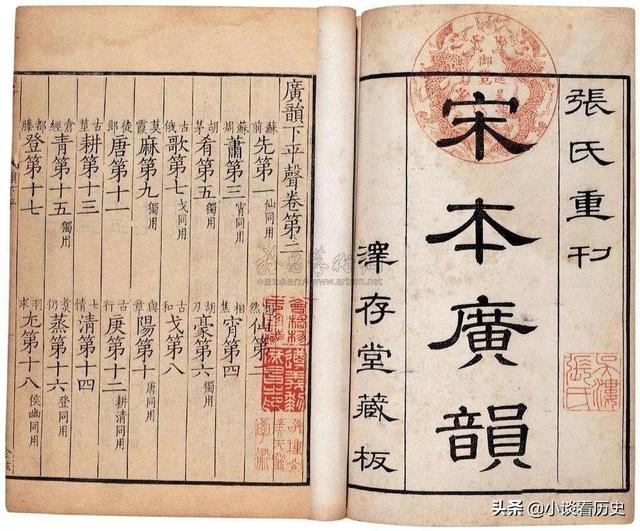 張氏重刊
宋本廣韻
澤存堂藏板
廣韻下平聲卷第二
蘇前先第一仙同用 然仙第二
蘇凋蕭第三宵同用 相焦宵第四
胡茅肴第五獨用 胡刀豪第六獨用
古俄歌第七戈同用 古和戈第八
莫霞麻第九獨用 與章陽第十唐同用
徒郎唐第十一 古行庚第十二耕清同用
古莖耕第十三 七情清第十四
倉經青第十五獨用 煑仍蒸第十六登同用
都滕登第十七 羽求尤第十八侯幽同用
頭条 @小谈看历史